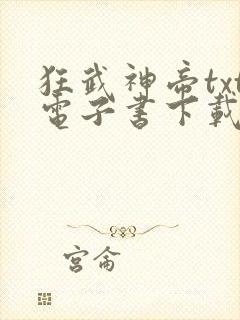 狂武神帝txt
電子書下載
宮侖